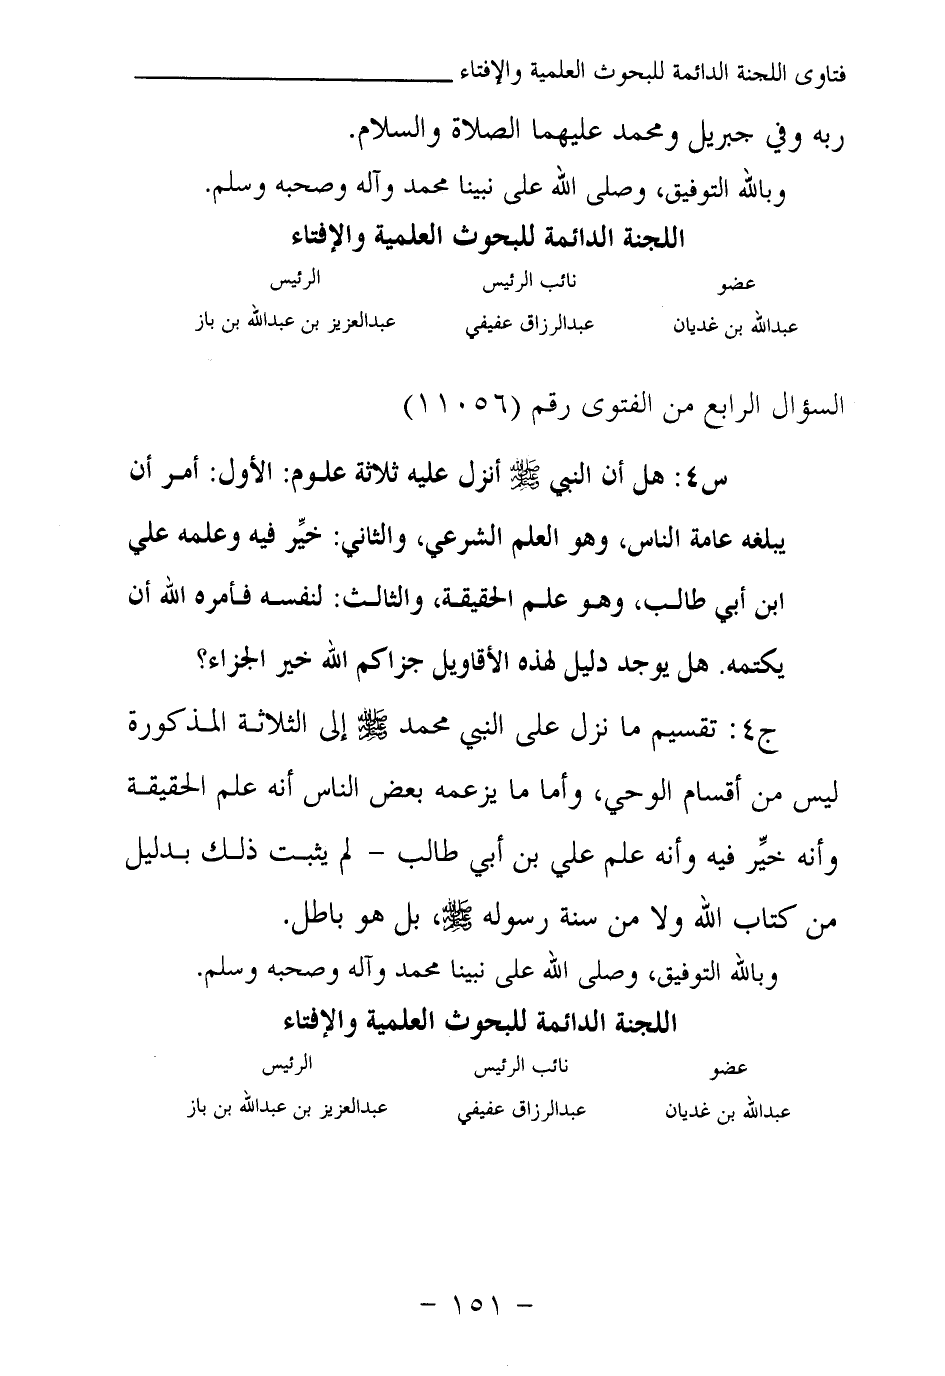 فتاوى اللجنة الدائمة للبحوث العلمية والإفتاء
ربه وفي جبريل ومحمد عليهما الصلاة والسلام.
وبالله التوفيق، وصلى الله على نبينا محمد وآله وصحبه وسلم.
اللجنة الدائمة للبحوث العلمية والإفتاء
عضو نائب الرئيس الرئيس
عبدالله بن غديان عبدالرزاق عفيفي عبدالعزيز بن عبدالله بن باز
السؤال الرابع من الفتوى رقم (١١٠٥٦)
س٤: هل أن النبي ﷺ أنزل عليه ثلاثة علوم: الأول: أمر أن
يبلغه عامة الناس، وهو العلم الشرعي، والثاني: خيِّر فيه وعلمه علي
ابن أبي طالب، وهو علم الحقيقة، والثالث: لنفسه فأمره الله أن
يكتمه. هل يوجد دليل لهذه الأقاويل جزاكم الله خير الجزاء؟
ج٤: تقسيم ما نزل على النبي محمد ﷺ إلى الثلاثة المذكورة
ليس من أقسام الوحي، وأما ما يزعمه بعض الناس أنه علم الحقيقة
وأنه خيِّر فيه وأنه علم علي بن أبي طالب – لم يثبت ذلك بدليل
من كتاب الله ولا من سنة رسوله ﷺ، بل هو باطل.
وبالله التوفيق، وصلى الله على نبينا محمد وآله وصحبه وسلم.
اللجنة الدائمة للبحوث العلمية والإفتاء
عضو نائب الرئيس الرئيس
عبدالله بن غديان عبدالرزاق عفيفي عبدالعزيز بن عبدالله بن باز
– ١٥١ –